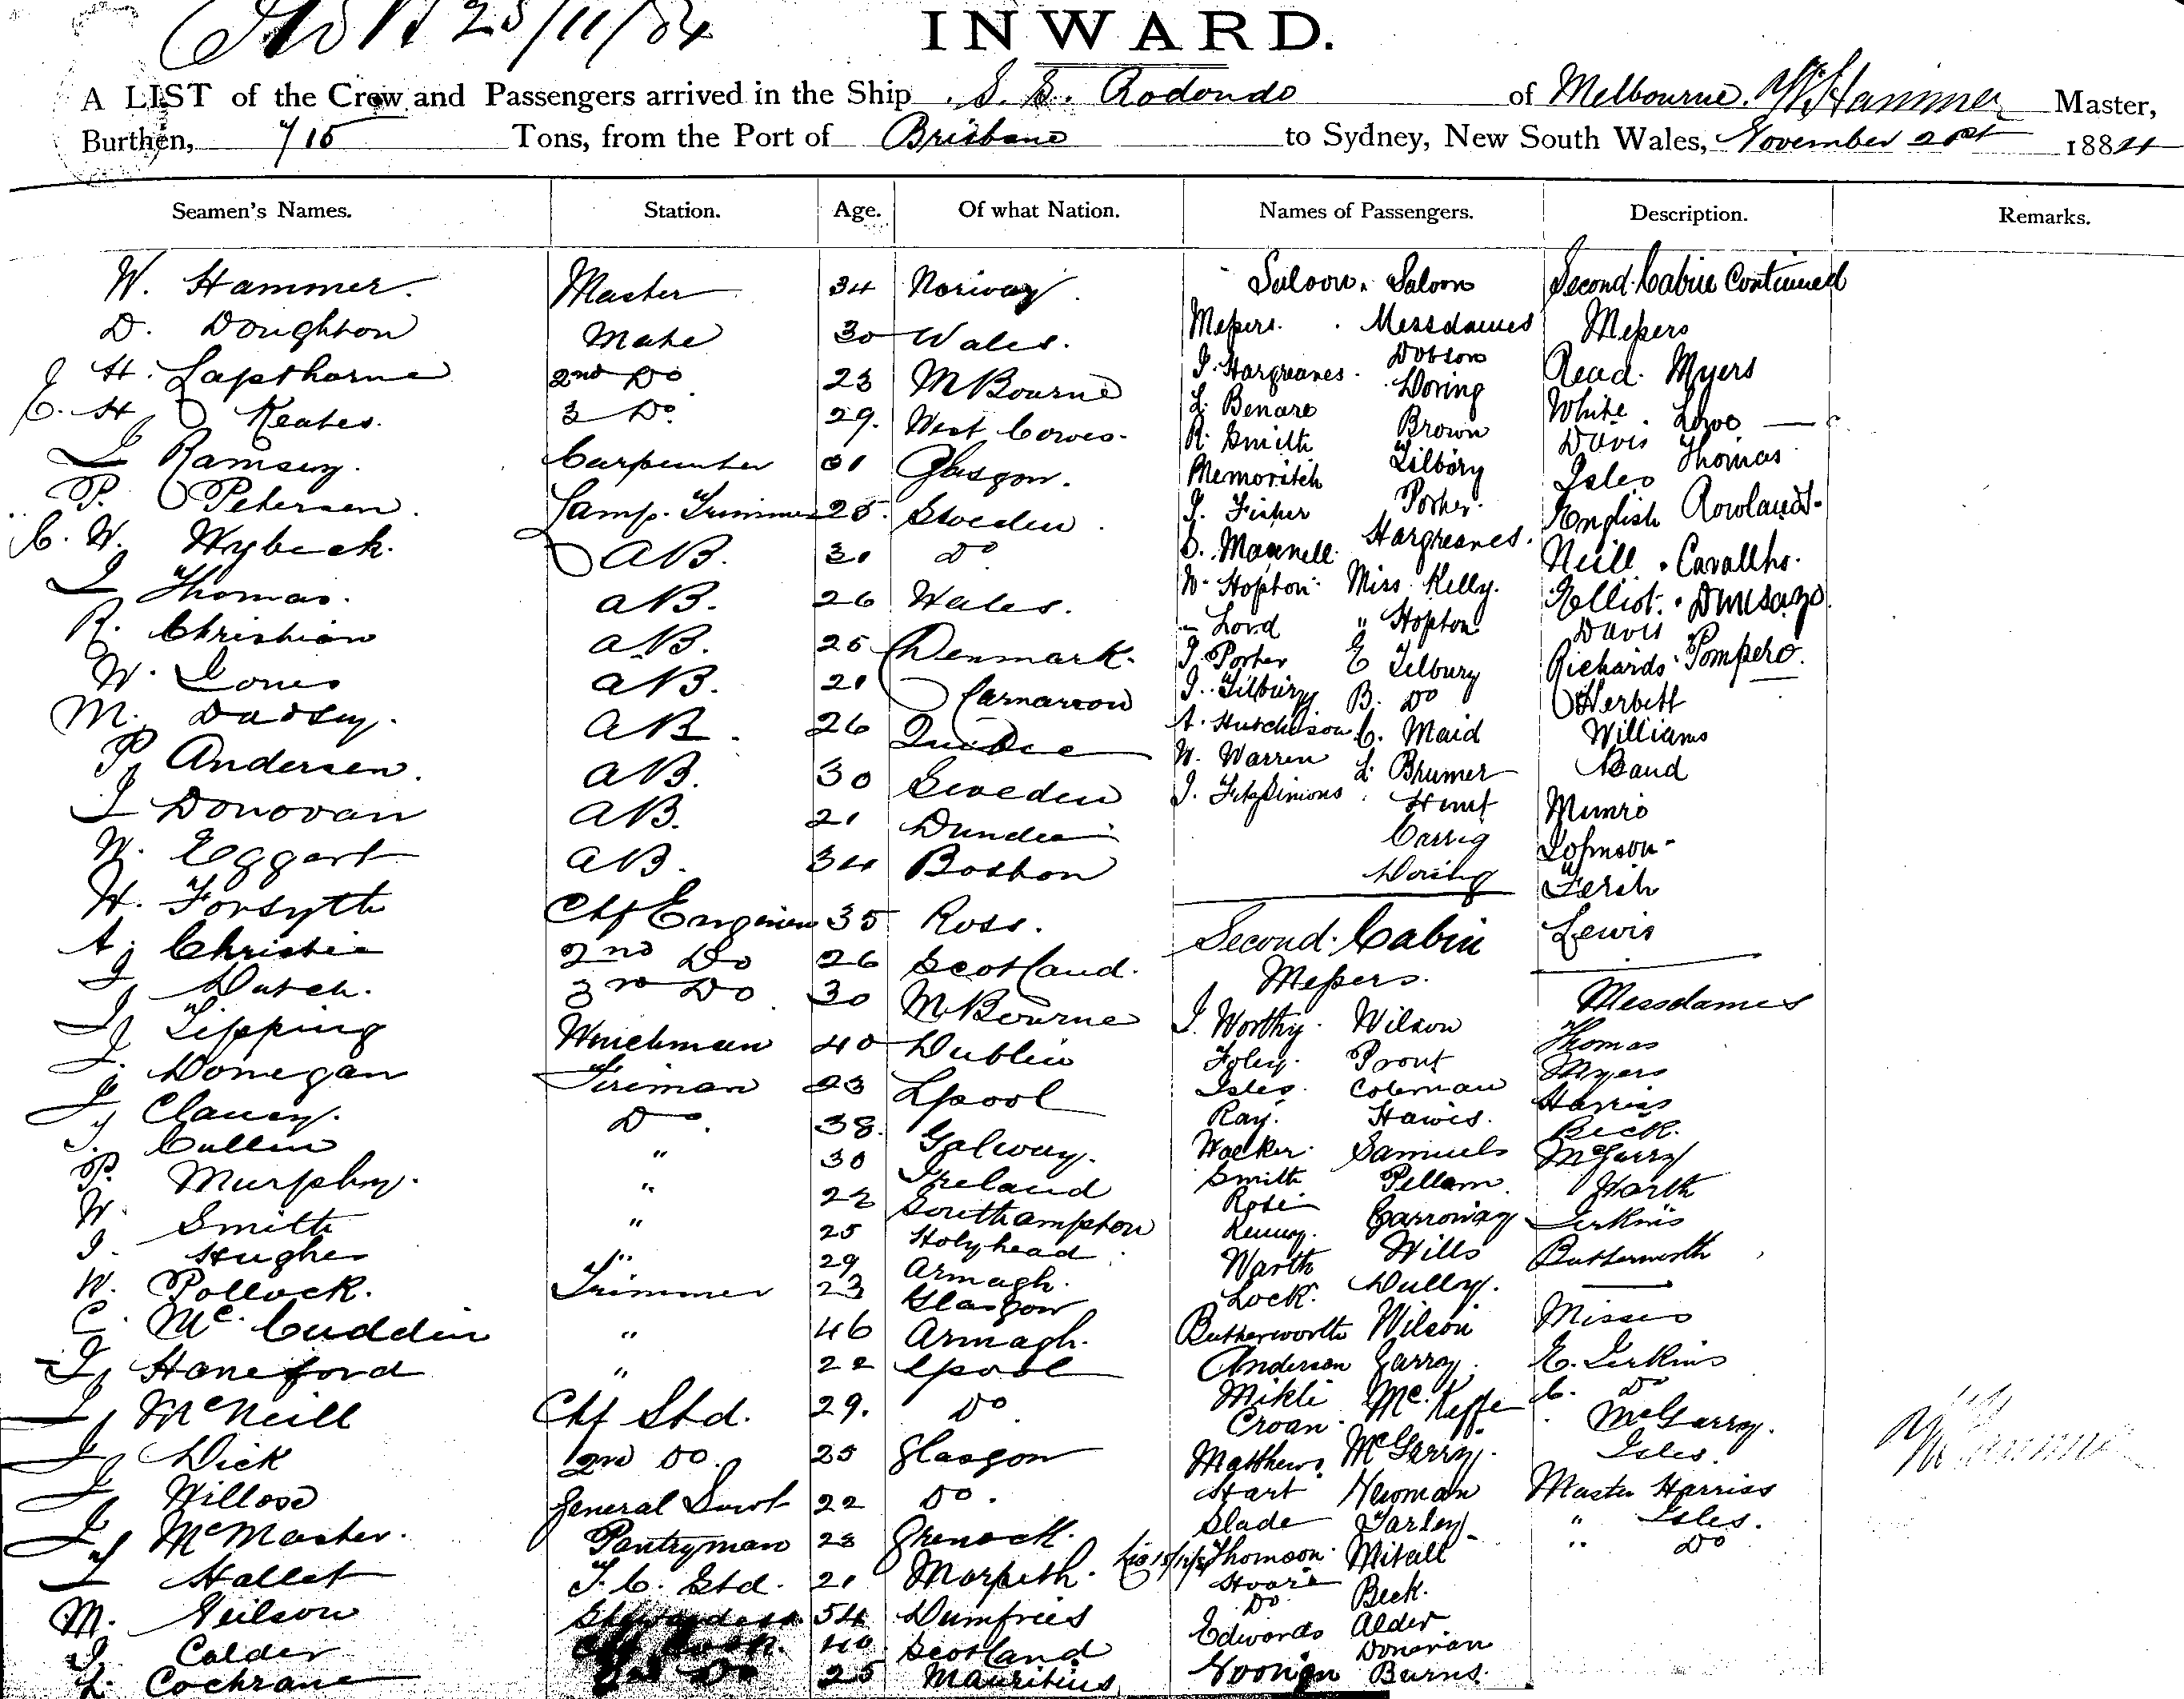 25/11/84
INWARD.
A LIST of the Crew and Passengers arrived in the Ship S. S. Rodondo of Melbourne. W Hammer Master,
Burthen, 715 Tons, from the Port of Brisbane to Sydney, New South Wales, November 21st 1884
Seamen's Names. Station. Age. Of what Nation. Names of Passengers. Description. Remarks.
W. Hammer. Master 34 Norway. Saloon. Saloon Second Cabin Continued
D. Doughton Mate 30 Wales. Messrs. Messdames Messrs
J H. Lapthorne 2nd Do 23 MBourne J. Hargreaves. Dobson Read. Myers
C. H. Keates. 3 Do. 29. West Cowes. L. Benare Doring White. Lowe
J Ramsey. Carpenter 31 Glasgow. R. Smith Brown Davis Thomas
P. Petersen. Lamp. Trimmer 25. Sweden. Memoritch Tilbury Isles
C. W. Wybeck. AB. 31 Do J. Fisher Porter. English Rowlands.
J Thomas. AB. 26 Wales. S. Maxnell. Hargreaves. Neill. Cavallho.
R. Christian AB. 25 Denmark. W. Hopton Miss. Kelly. Elliot.
W. Jones AB. 21 Carnarvon Lord " Hopton Davis
M. Dadsey. AB. 26 J. Porter E Tilbury Richards. Pompero.
P. Andersen. AB. 30 Sweden J. Tilbury B. Do Herbett
J Donovan AB. 21 Dundee A. Hutchison C. Maid Williams
W. Eggart AB. 34 Boston W. Warren L. Brumer Band
W. Forsyth Chf Engineer 35 Ross. J. FitzSimons. Hunt Munro
A. Christie 2nd Do 26 Scotland. Carrig Johnson
J Dutch. 3rd Do 30 MBourne Doring Lewis
J Tipping Winchman 40 Dublin Second. Cabin
J. Donegan Fireman 23 Lpool Messrs. Messdames
J Clancy. Do. 38. Galway. J. Worthy. Wilson Thomas
J. Cullen " 30 Ireland Foley. Prout Myers
P. Murphy. " 22 Southampton Isles. Coleman Harriss
W. Smith " 25 Holyhead Ray. Hawes. Beck.
J. Hughes " 29 Armagh. Walker. Samuels McGarry
W. Pollock. Trimmer 23 Glasgow Smith Pellam. Warth
C. Mc. Cuddin " 46 Armagh. Rosei Garroway Jerkins
J. Haneford " 22 Lpool Kenny. Wills Butterworth
J McNeill Chf Std. 29. Do Warth Dully.
J Dick 2nd Do. 25 Glasgow Lock. Wilson Misses
J Willox General Servt 22 Do. Butherworth Garroy. E. Jerkins
J McMaster. Pantryman 23 Grenock. Anderson Mc. Keffe C. Do
J Hallet F. C. Std. 21 Morpeth. Mikli McGarry. McGarry.
M. Neilson Stewardess 54 Dumfries Croan. Newman Isles.
J. Calder Chf Cook. 40. Scotland Matthews. Farley Master Harriss
L. Cochrane 2nd Do 25 Mauritius Hart Mitall " Isles.
Slade Beck. " Do
Thomson. Alder
Hoare Donovan
Do Burns.
Edwards